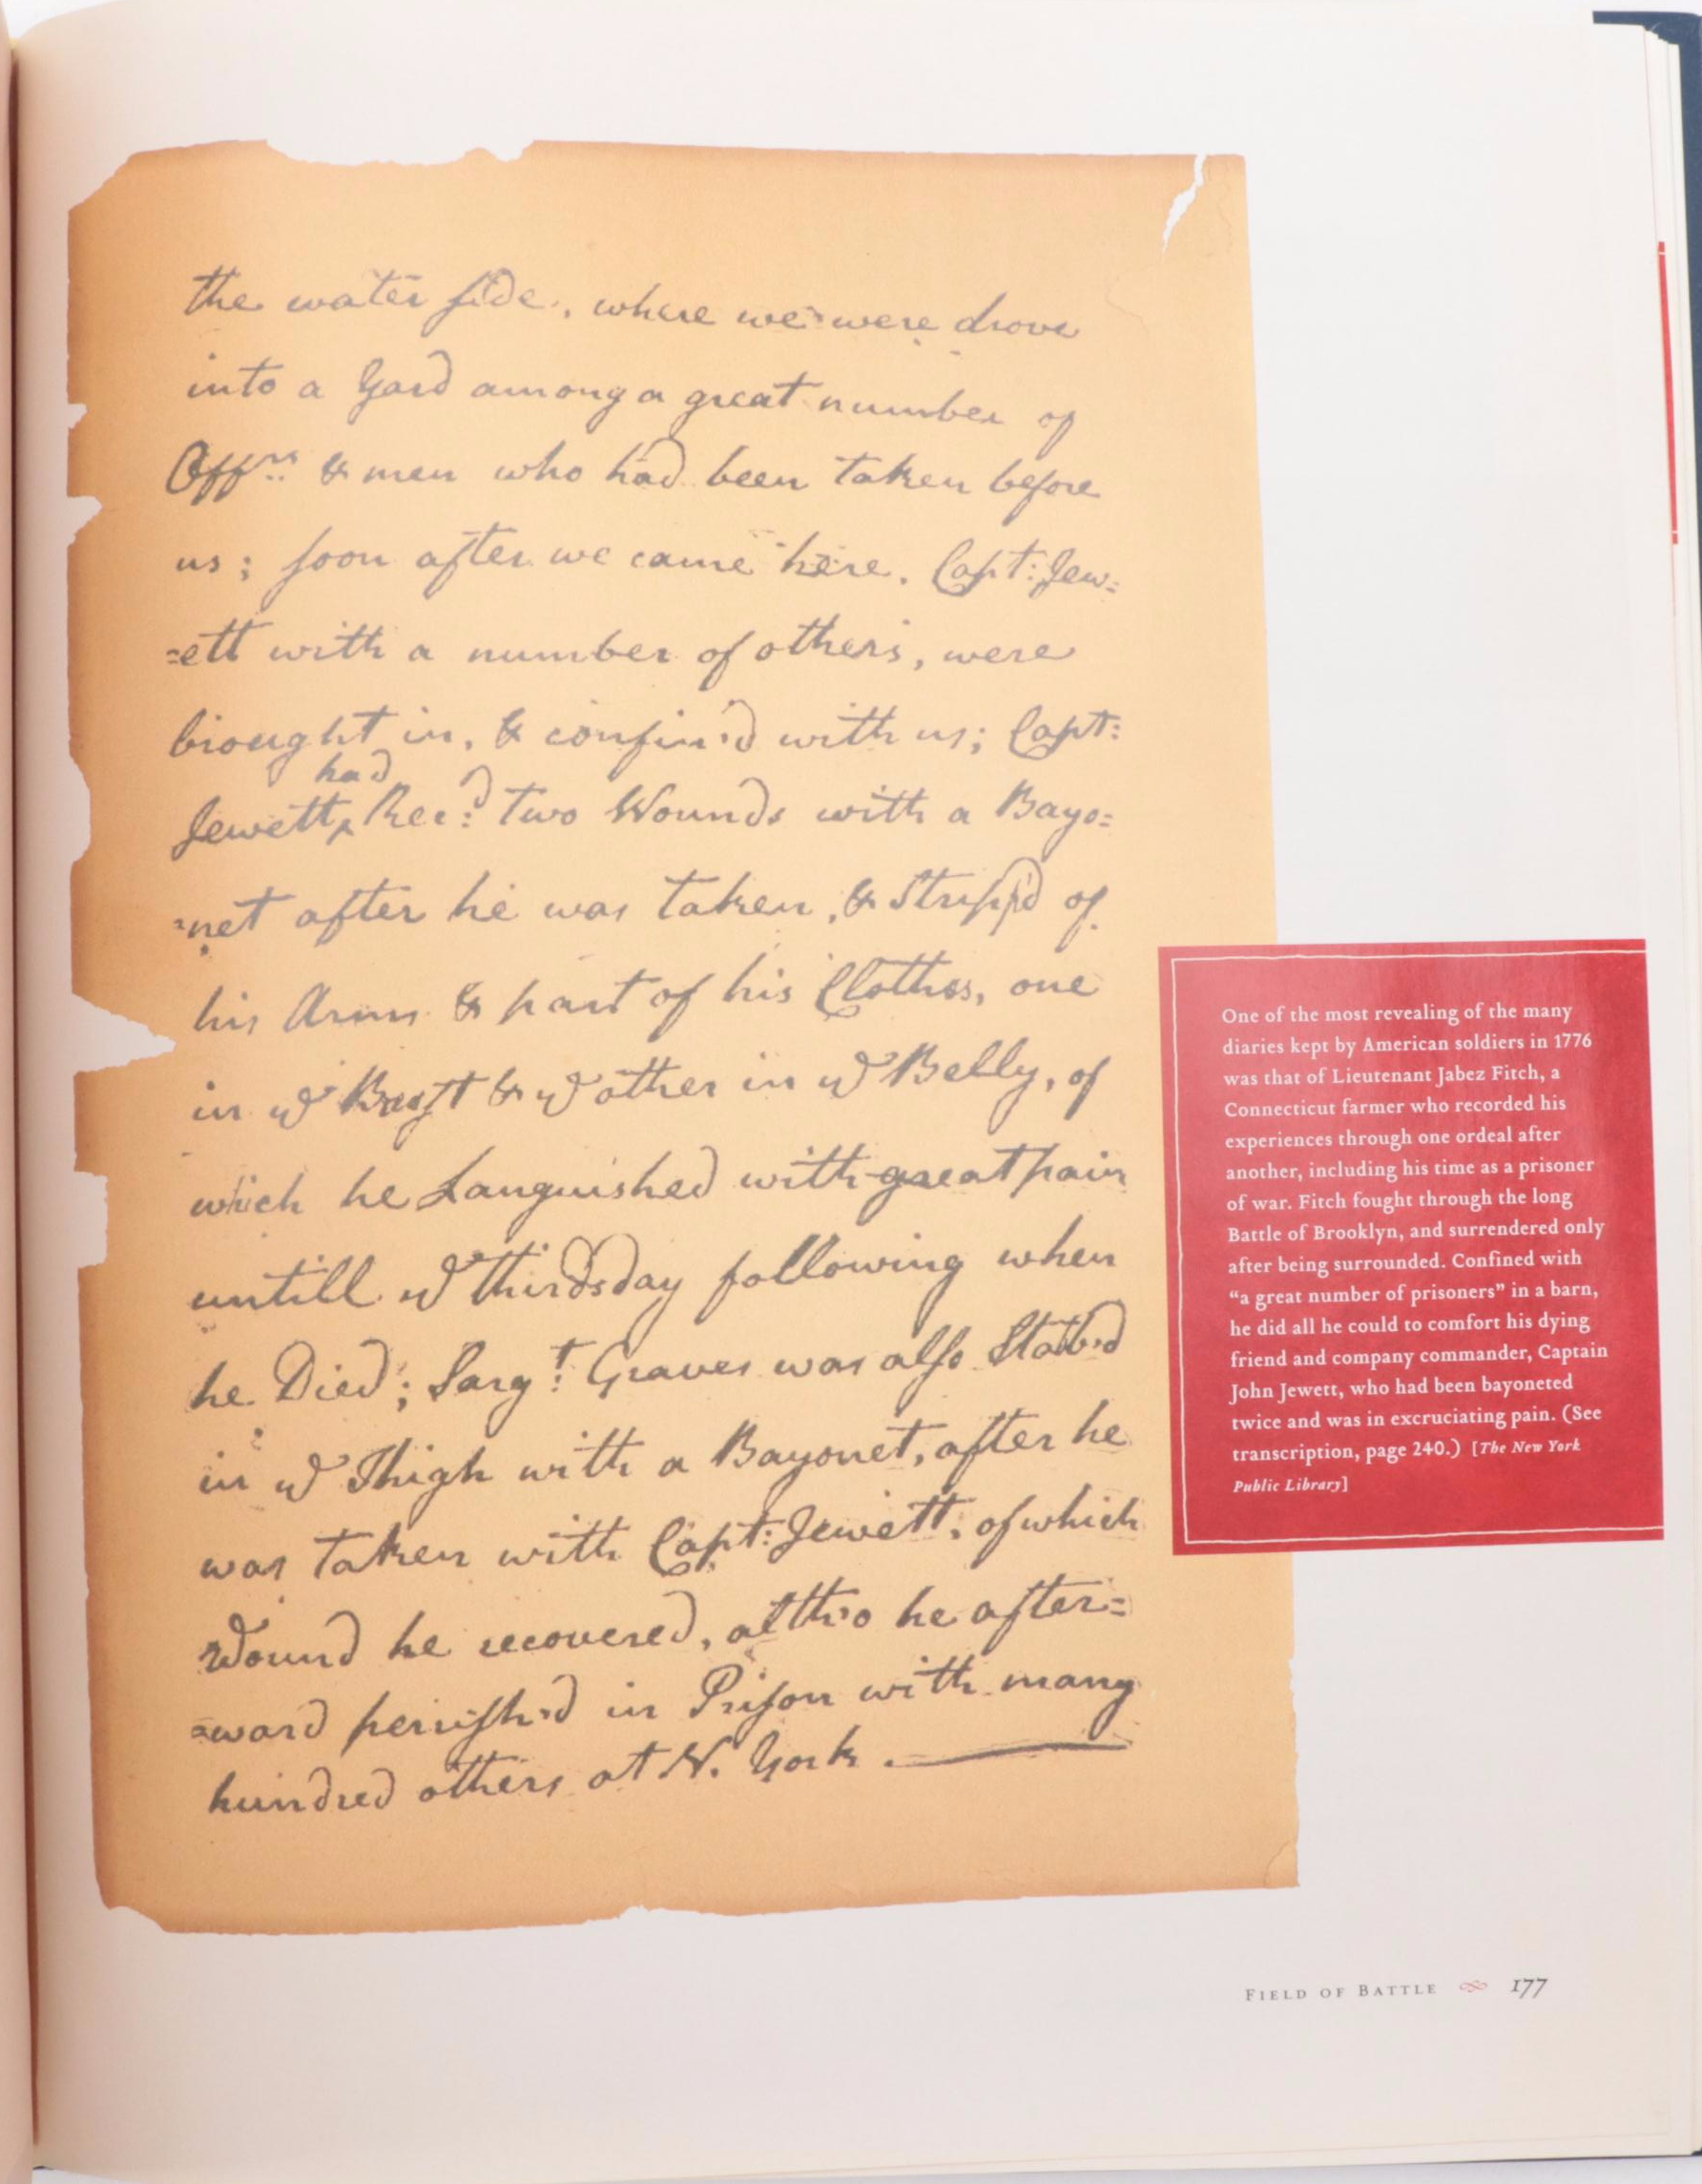 the water side, where we were drove
into a Yard among a great number of
Offrs: & men who had been taken before
us; soon after we came here, Capt: Jew=
=ett with a number of others, were
brought in, & confin'd with us; Capt:
had
Jewett ‸ Rec:d two Wounds with a Bayo=
=net after he was taken, & Strip'd of
his Arms & part of his Clothes, one
in ye Brest & ye other in ye Belly, of
which he Languished with great pain
untill ye thirdsday following when
he Died; Sarg:t Graves was also Stab'd
in ye Thigh with a Bayonet, after he
was taken with Capt: Jewett, of which
Wound he recovered, altho he after=
=ward perish'd in Prison with many
hundred others at N. York.
One of the most revealing of the many
diaries kept by American soldiers in 1776
was that of Lieutenant Jabez Fitch, a
Connecticut farmer who recorded his
experiences through one ordeal after
another, including his time as a prisoner
of war. Fitch fought through the long
Battle of Brooklyn, and surrendered only
after being surrounded. Confined with
“a great number of prisoners” in a barn,
he did all he could to comfort his dying
friend and company commander, Captain
John Jewett, who had been bayoneted
twice and was in excruciating pain. (See
transcription, page 240.) [The New York
Public Library]
FIELD OF BATTLE 177